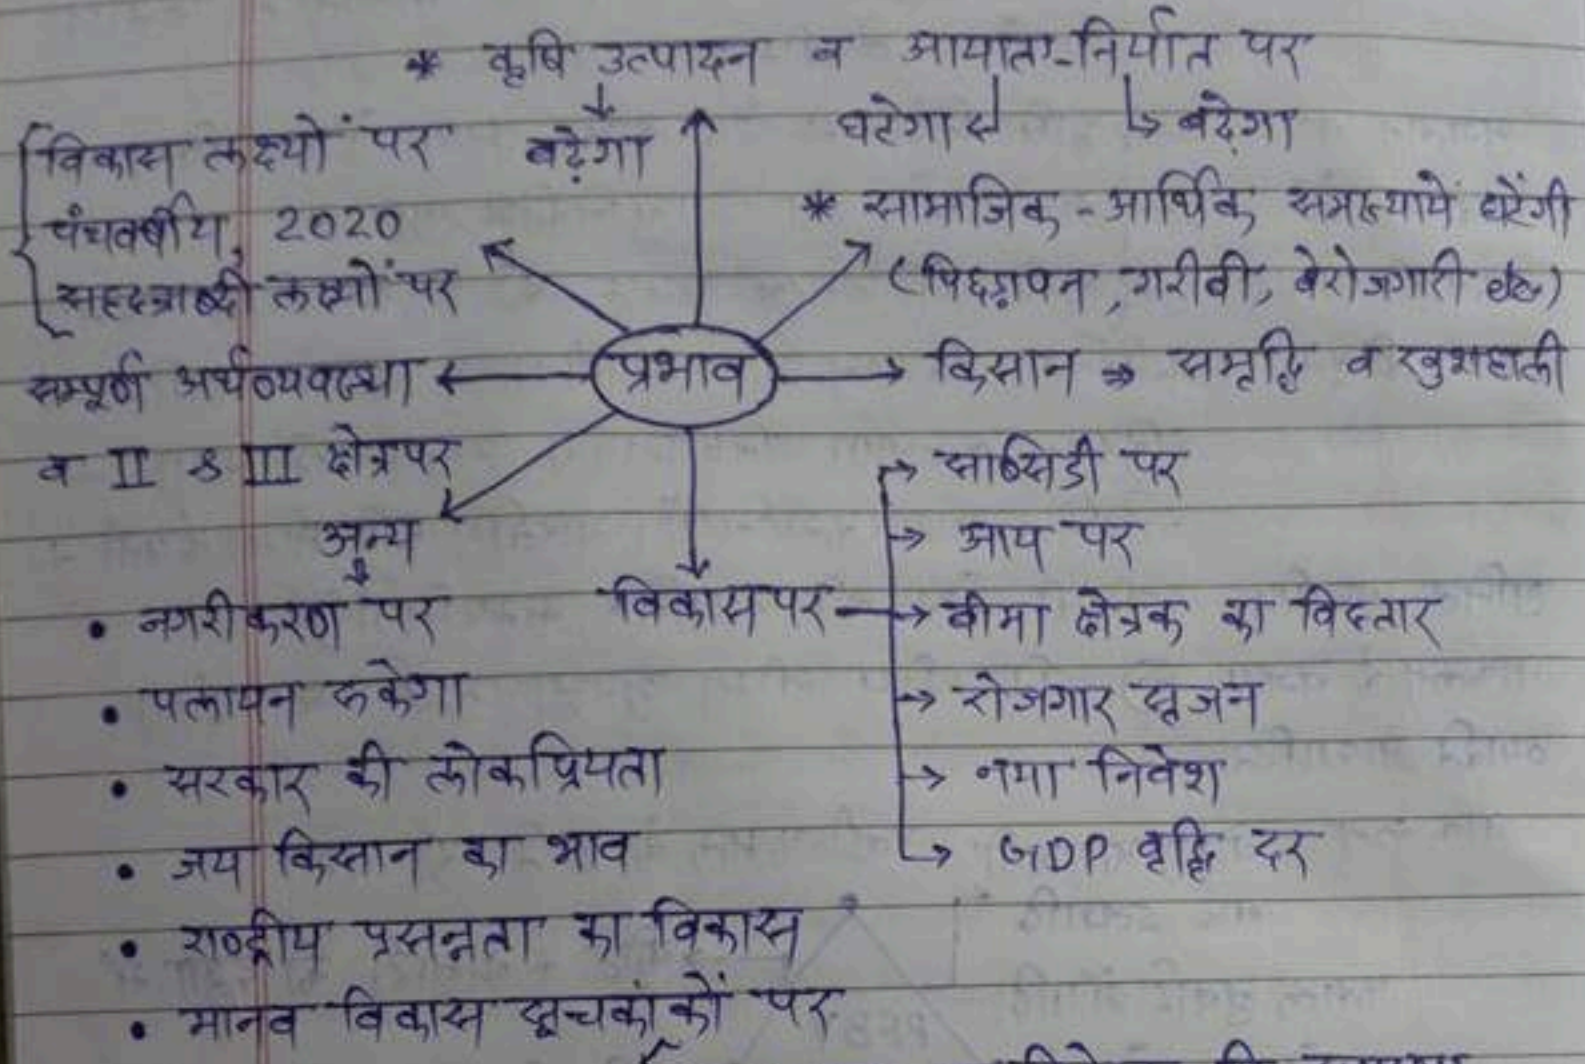 * कृषि उत्पादन व आयात-निर्यात पर
बढ़ेगा
घटेगा
बढ़ेगा
विकास लक्ष्यों पर
पंचवर्षीय, 2020
सहस्त्राब्दी लक्ष्यों पर
* सामाजिक - आर्थिक समस्यायें घटेंगी
(पिछड़ापन, गरीबी, बेरोजगारी etc)
सम्पूर्ण अर्थव्यवस्था
व II & III क्षेत्र पर
प्रभाव
किसान ⇒ समृद्धि व खुशहाली
अन्य
• नगरीकरण पर
• पलायन रुकेगा
• सरकार की लोकप्रियता
• जय किसान का भाव
• राष्ट्रीय प्रसन्नता का विकास
• मानव विकास सूचकांकों पर
विकास पर
सब्सिडी पर
आय पर
बीमा क्षेत्रक का विस्तार
रोजगार सृजन
नया निवेश
GDP वृद्धि दर